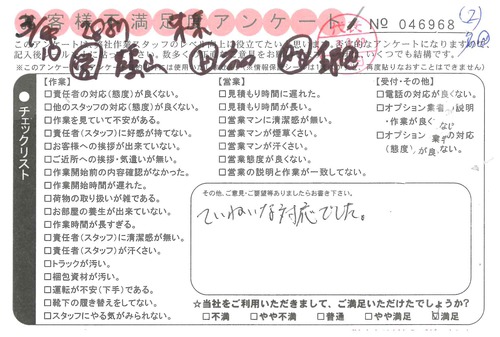 お客様満足度アンケート
No 046968
このアンケートは、弊社作業スタッフのレベル向上に役立てたい
【作業】
□責任者の対応(態度)が良くない。
□他のスタッフの対応(態度)が良くない。
□作業を見ていて不安がある。
□責任者(スタッフ)に好感が持てない。
□お客様への挨拶が出来ていない。
□ご近所への挨拶・気遣いが無い。
□作業開始前の内容確認がなかった。
□作業開始時間が遅れた。
□荷物の取り扱いが雑である。
□お部屋の養生が出来ていない。
□作業時間が長すぎる。
□責任者(スタッフ)に清潔感が無い。
□責任者(スタッフ)が汗くさい。
□トラックが汚い。
□梱包資材が汚い。
□運転が不安(下手)である。
□靴下の履き替えをしてない。
□スタッフにやる気がみられない。
【営業】
□見積もり時間に遅れた。
□見積もり時間が長い。
□営業マンに清潔感が無い。
□営業マンが煙草くさい。
□営業マンが汗くさい。
□営業態度が良くない。
□営業の説明と作業が一致してない。
【受付・その他】
□電話の対応が良くない。
□オプション業者の説明
・作業が良くない
□オプション業者の対応
(態度)が良くない。
チェックリスト
その他、ご意見・ご要望等ありましたらお書き下さい。
ていねいな対応でした。
☆当社をご利用いただきまして、ご満足いただけたでしょうか?
□不満 □やや不満 □普通 □やや満足 ☑満足